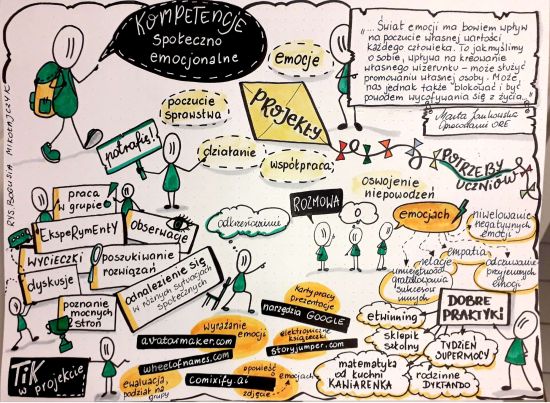 KOMPETENCJE
społeczno
emocjonalne
"...Świat emocji ma bowiem wpływ
na poczucie własnej wartości
każdego człowieka. To jak myślimy
o sobie, wpływa na kreowanie
własnego wizerunku - może służyć
promowaniu własnej osoby. Może
nas jednak także "blokować" i być
powodem wycofywania się z życia."
Marta Jankowska
Opracowanie ORE
RYS. BOGUSIA MIKOŁAJCZYK
emocje
poczucie
sprawstwa
PROJEKTY
potrafię!!
działanie
współpraca
POTRZEBY
UCZNIÓW
praca
w grupie
EkspeRymEnTY
obserwacje
WYCIECZKI
poszukiwanie
rozwiązań
dyskusje
odnalezienie się
w różnych sytuacjach
społecznych
poznanie
mocnych
stron
odkrywanie
ROZMOWA
o
oswojenie
niepowodzeń
emocjach
niwelowanie
negatywnych
emocji
empatia
relacje
umiejętność
gratulowania
sukcesów
innych
odczuwanie
przyjemnych
emocji
DOBRE
PRAKTYKI
etwinning
sklepik
szkolny
TYDZIEŃ
SUPERMOCY
matematyka
od kuchni
KAWIARENKA
rodzinne
DYKTANDO
karty pracy
prezentacje
narzędzia GOOGLE
wyrażanie
emocji
avatarmaker.com
elektroniczne
książeczki
storyjumper.com
wheelofnames.com
ewaluacja,
podział na
grupy
opowieść
o emocjach
comixify.ai
zdjęcie
TiK
w projekcie